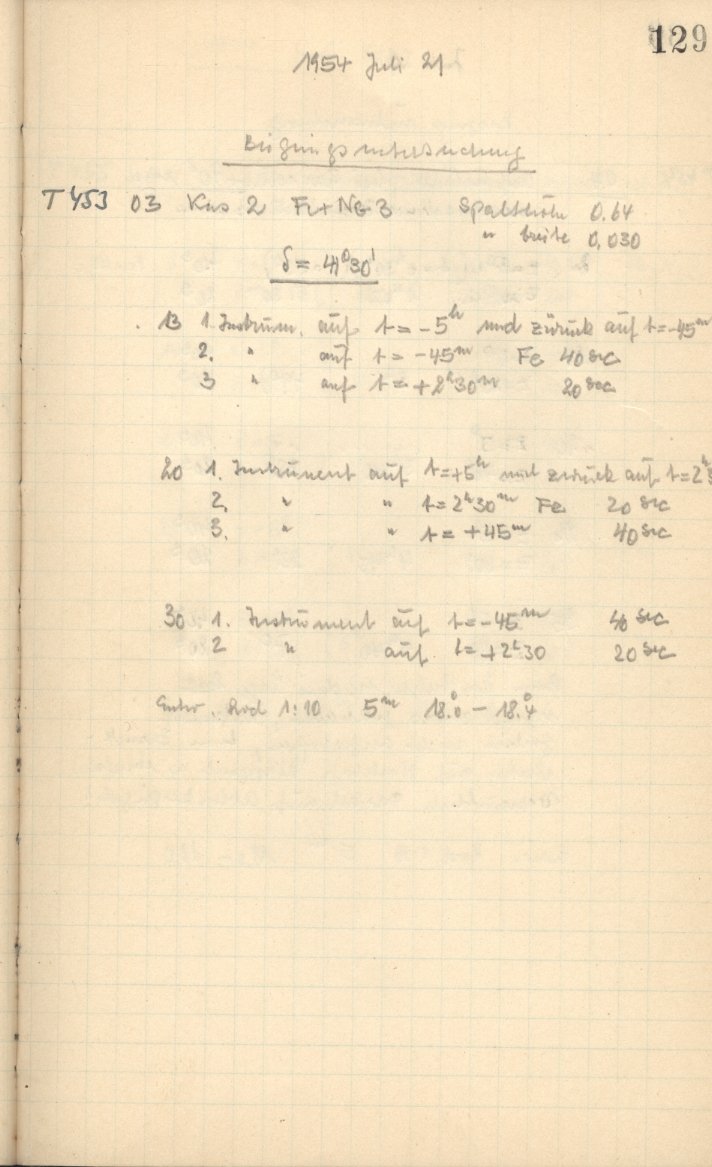 129
1954 Juli 21
Biegungsuntersuchung
T453 03 Kas 2 Fe+Ne 3 Spalthöhe 0.64
" breite 0.030
δ = 41°30'
13 1. Instrum. auf t = -5h und zurück auf t=-45m
2. " auf t = -45m Fe 40sec
3 " auf t = +2h30m 20sec
20 1. Instrument auf t=+5h und zurück auf t=2h3
2. " " t=2h30m Fe 20sec
3. " " t = +45m 40sec
30 1. Instrument auf t=-45m 40sec
2 " auf t=+2h30 20sec
Entw. Rod 1:10 5m 18.°0 - 18.°4